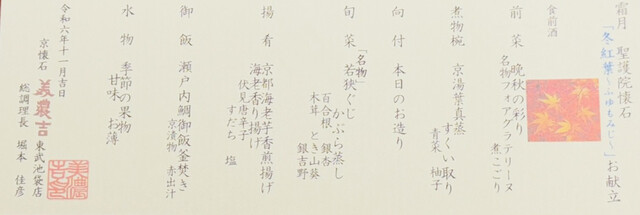 霜月 聖護院懐石
「冬紅葉~ふゆもみじ~」お献立
食前酒
前菜 晩秋の彩り
名物フォアグラテリーヌ
煮こごり
煮物椀 京湯葉真蒸
すくい取り
青菜 柚子
向付 本日のお造り
旬菜 「名物」
若狭ぐじ かぶら蒸し
百合根 銀杏
木茸 とき山葵
銀吉野
揚肴 京都海老芋香煎揚げ
海老香り揚げ
伏見唐辛子
すだち 塩
御飯 瀬戸内鯛御飯釜焚き
京漬物 赤出汁
水物 季節の果物
甘味 お薄
令和六年十一月吉日
京懐石 美濃吉 東武池袋店
総調理長 堀本 佳彦
美濃吉